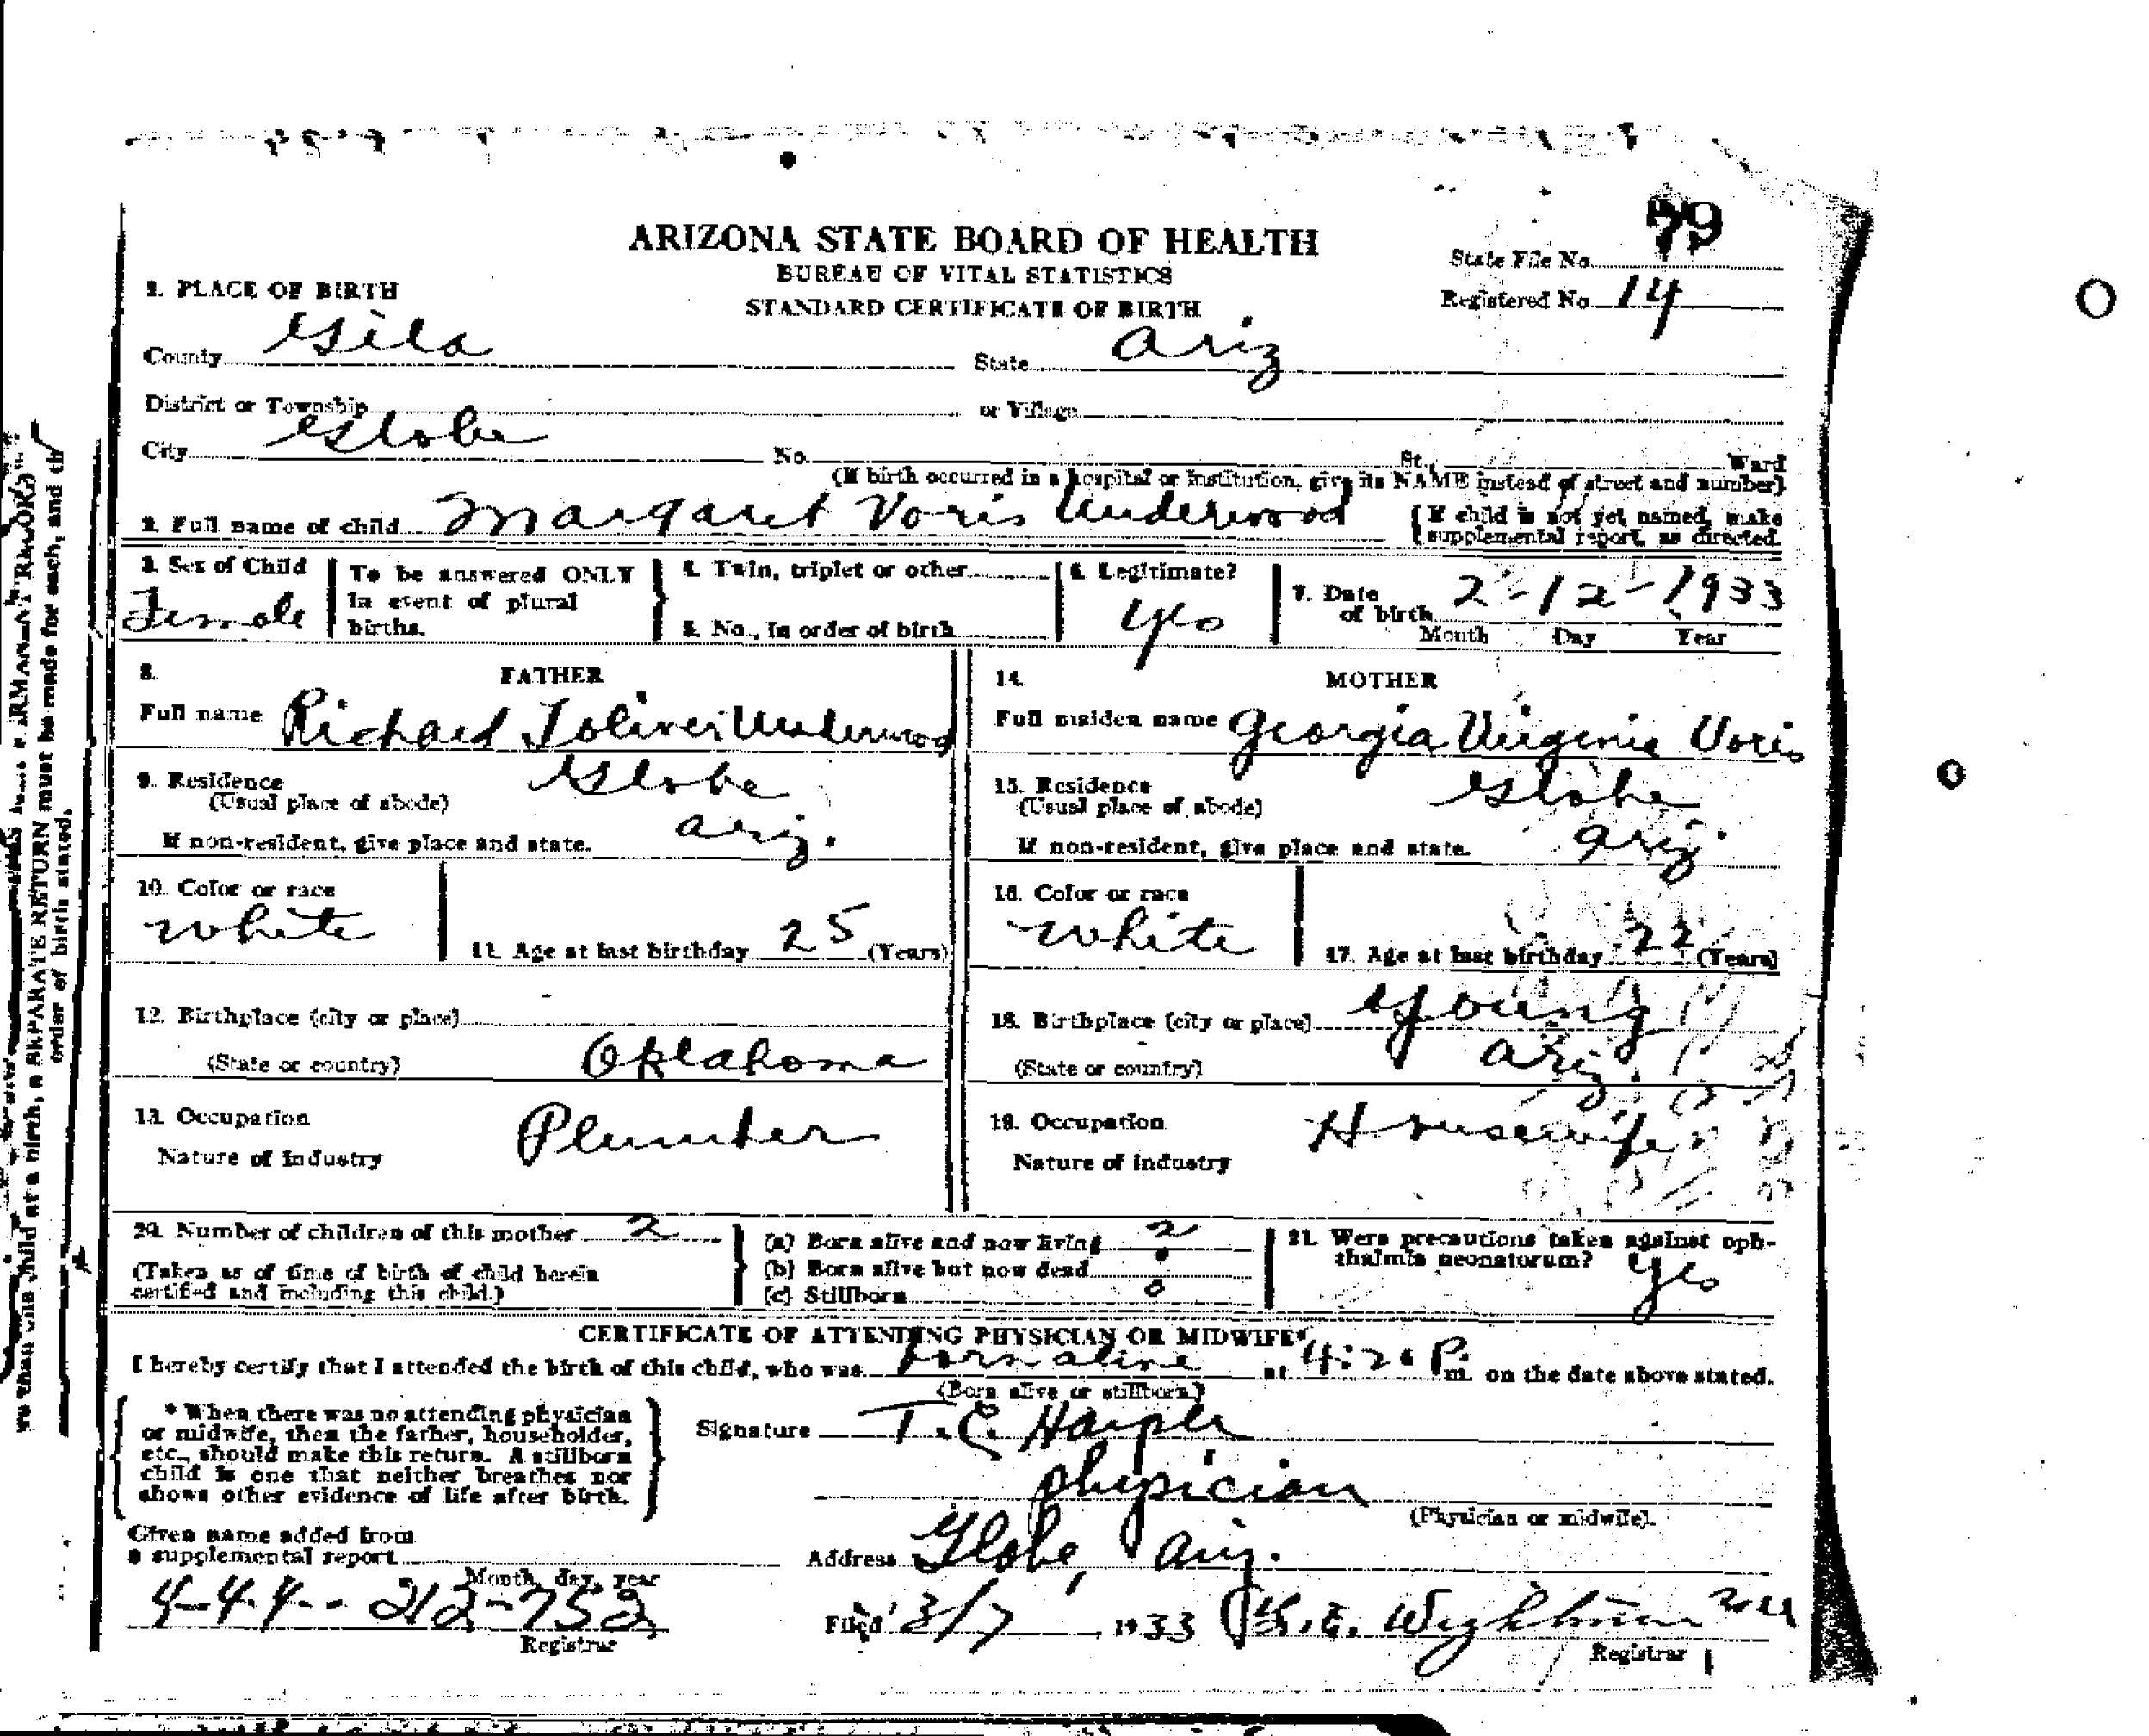 79
ARIZONA STATE BOARD OF HEALTH
State File No.
BUREAU OF VITAL STATISTICS
1. PLACE OF BIRTH
STANDARD CERTIFICATE OF BIRTH
Registered No. 14
County Gila State Ariz
District or Township or Village
City Globe No. St., Ward
(If birth occurred in a hospital or institution, give its NAME instead of street and number)
2. Full name of child Margaret Voris Underwood { If child is not yet named, make
supplemental report, as directed.
3. Sex of Child To be answered ONLY 4. Twin, triplet or other 6. Legitimate? 7. Date 2-12-1933
Female In event of plural births. 5. No., in order of birth yes of birth
Month Day Year
8. FATHER 14. MOTHER
Full name Richard Toliver Underwood Full maiden name Georgia Virginia Voris
9. Residence Globe 15. Residence Globe
(Usual place of abode) (Usual place of abode)
If non-resident, give place and state. Ariz. If non-resident, give place and state. Ariz
10. Color or race 16. Color or race
white 11. Age at last birthday 25 (Years) white 17. Age at last birthday 22 (Years)
12. Birthplace (city or place) 18. Birthplace (city or place) Young
(State or country) Oklahoma (State or country) Ariz.
13. Occupation Plumber 19. Occupation Housewife
Nature of Industry Nature of Industry
20. Number of children of this mother 2 (a) Born alive and now living 2 21. Were precautions taken against oph-
thalmia neonatorum? yes
(Taken as of time of birth of child herein (b) Born alive but now dead
certified and including this child.) (c) Stillborn 0
CERTIFICATE OF ATTENDING PHYSICIAN OR MIDWIFE*
I hereby certify that I attended the birth of this child, who was born alive at 4:20 P. m. on the date above stated.
(Born alive or stillborn)
* When there was no attending physician
or midwife, then the father, householder,
etc., should make this return. A stillborn
child is one that neither breathes nor
shows other evidence of life after birth.
Signature T. C. Harper
physician
(Physician or midwife).
Given name added from
a supplemental report
Month, day, year
Address Globe, Ariz.
Registrar
Filed 3/7 1933
Registrar
must be made for each, and
a SEPARATE RETURN
order of birth stated.